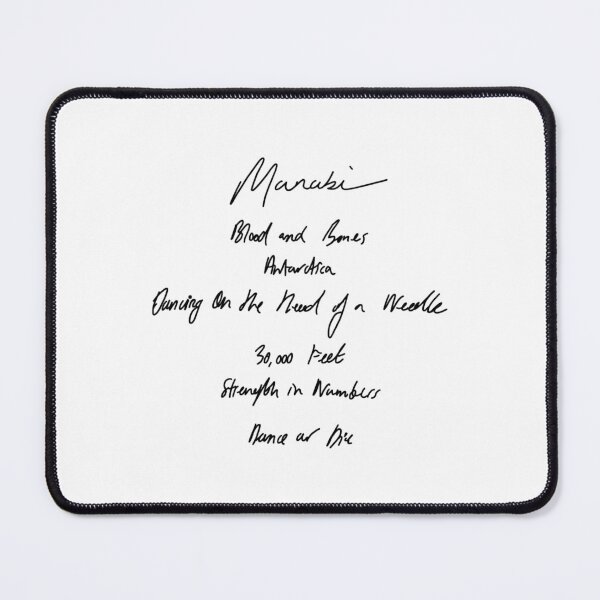 Manabi
Blood and Bones
Antarctica
Dancing On the Head of a Needle
30,000 Feet
Strength in Numbers
Dance or Die